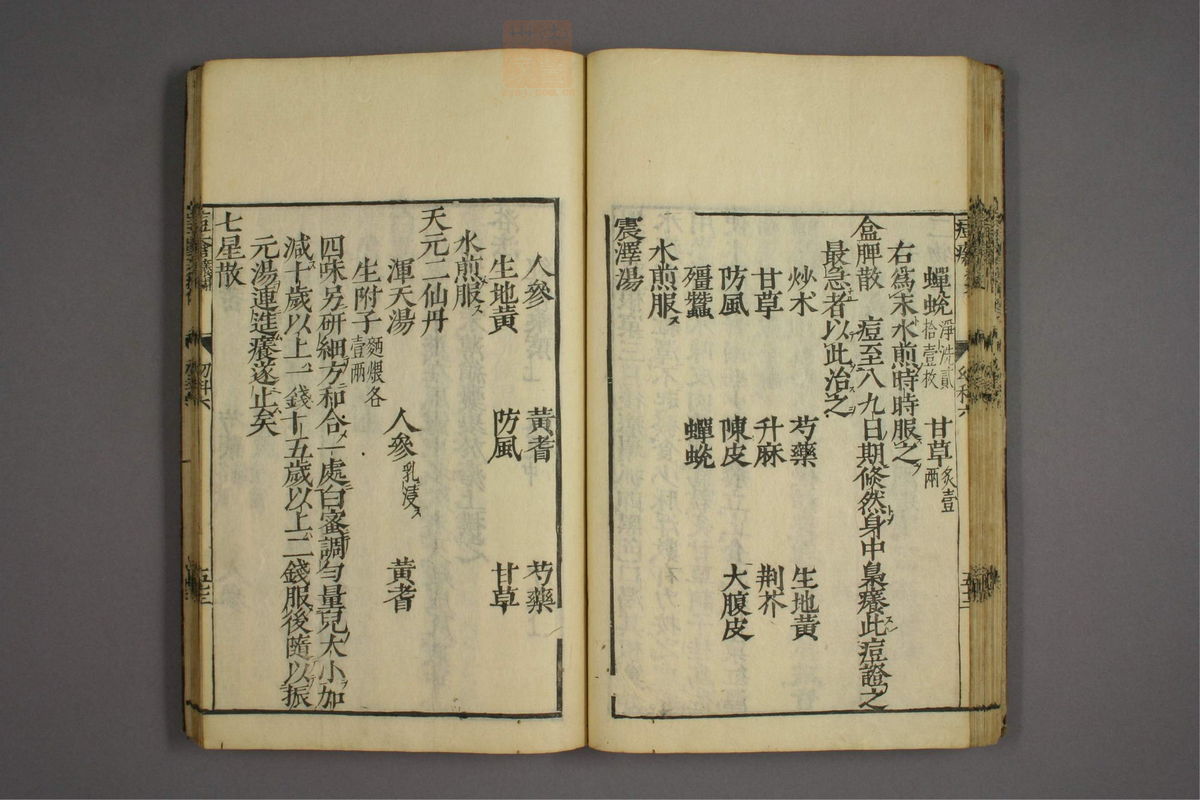 蟬蛻淨洗貳拾壹枚 甘草炙壹兩
右爲末水煎時時服之
盒脾散 痘至八九日期倏然身中梟癢此痘證之
最急者以此治之
炒朮 芍藥 生地黃
甘草 升麻 荆芥
防風 陳皮 大腹皮
殭蠶 蟬蛻
水煎服
震澤湯
人參 黃耆 芍藥
生地黃 防風 甘草
水煎服
天元二仙丹
渾天湯 人參乳浸 黃耆
生附子麵煨各壹兩
四味另研細方和合一處白蜜調勻量兒大小加
減十歲以上一錢十五歲以上二錢服後隨以振
元湯連進癢遂止矣
七星散